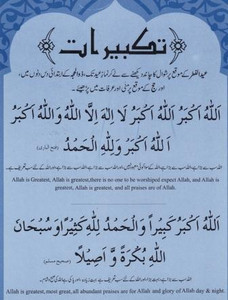 تکبیرات
عیدالفطر کے موقع پر شوال کا چاند دیکھنے سے لے کر نماز عید تک، ذوالحجہ کے ابتدائی دس دنوں میں،
اور حج کے موقع پر منیٰ اور عرفات میں پڑھیئے۔
اَللّٰهُ اَكْبَرُ اَللّٰهُ اَكْبَرُ لَا اِلٰهَ اِلَّا اللّٰهُ وَاللّٰهُ اَكْبَرُ
اَللّٰهُ اَكْبَرُ وَلِلّٰهِ الْحَمْدُ
Allah is Greatest, Allah is greatest,there is no one to be worshiped expect Allah, and Allah is
greatest, Allah is greatest, and all praises are of Allah.
اَللّٰهُ اَكْبَرُ كَبِيْرًا وَالْحَمْدُ لِلّٰهِ كَثِيْرًا وَسُبْحَانَ
اللّٰهِ بُكْرَةً وَّ اَصِيْلًا (صحیح مسلم)
Allah is greatest, most great,all abundant praises are for Allah and glory of Allah day & night.